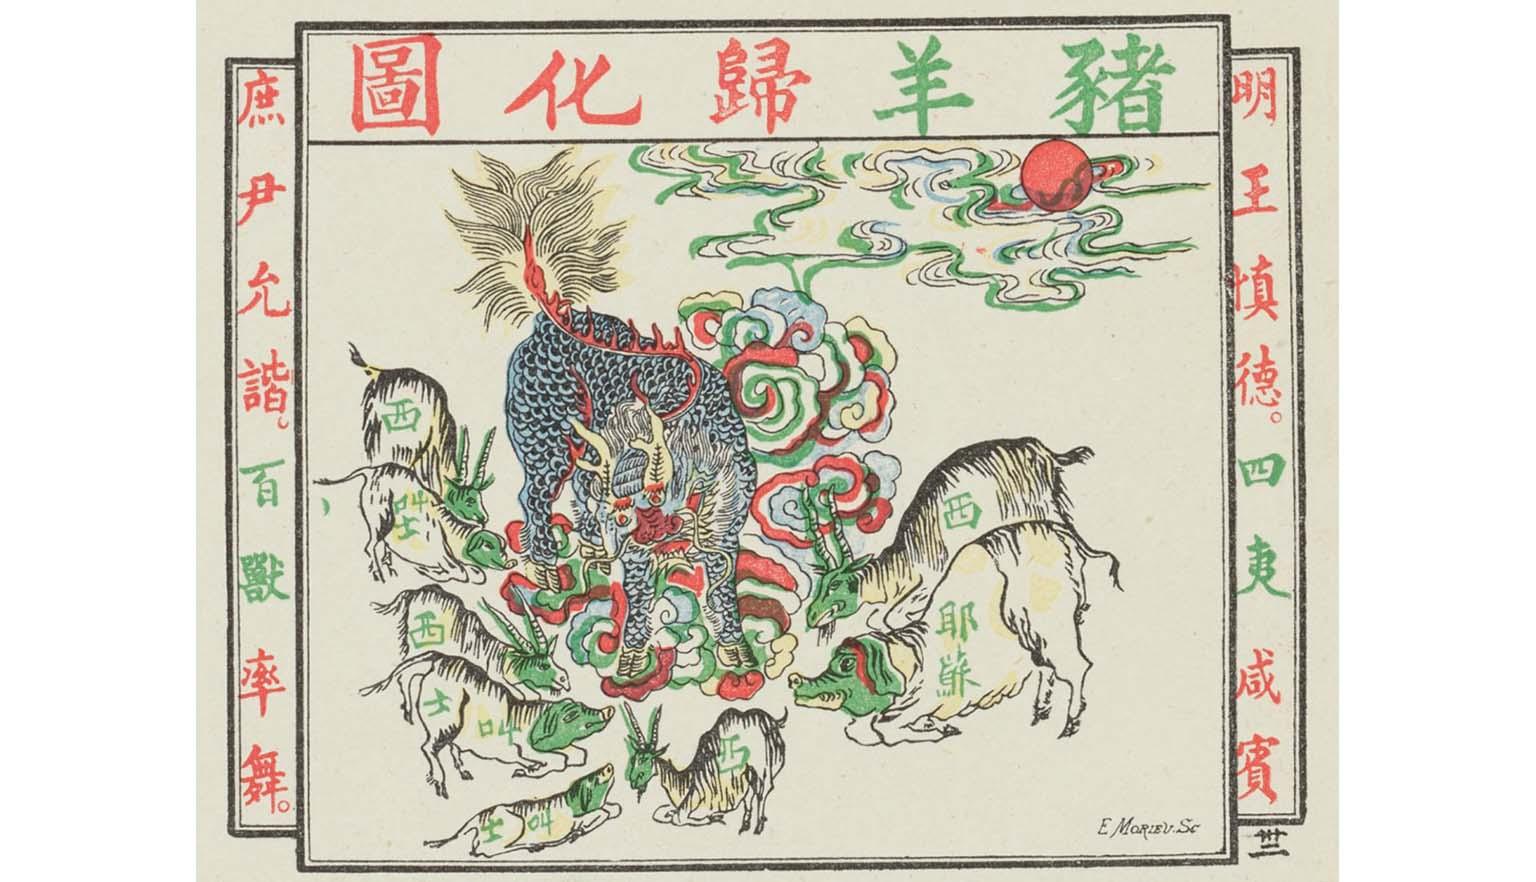 豬羊歸化圖
明王慎德。四夷咸賓
庶尹允諧。百獸率舞。
西
耶蘇
西
叫士
西
叫士
西
叫士
E MORIEU. Sc
卅二